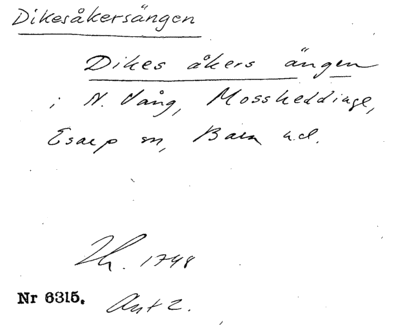 Dikesåkersängen
Dikes åkers ängen
i N. Vång, Mossheddinge,
Esarp sn, Bara hd.
1748
Nr 6315. Ant 2.